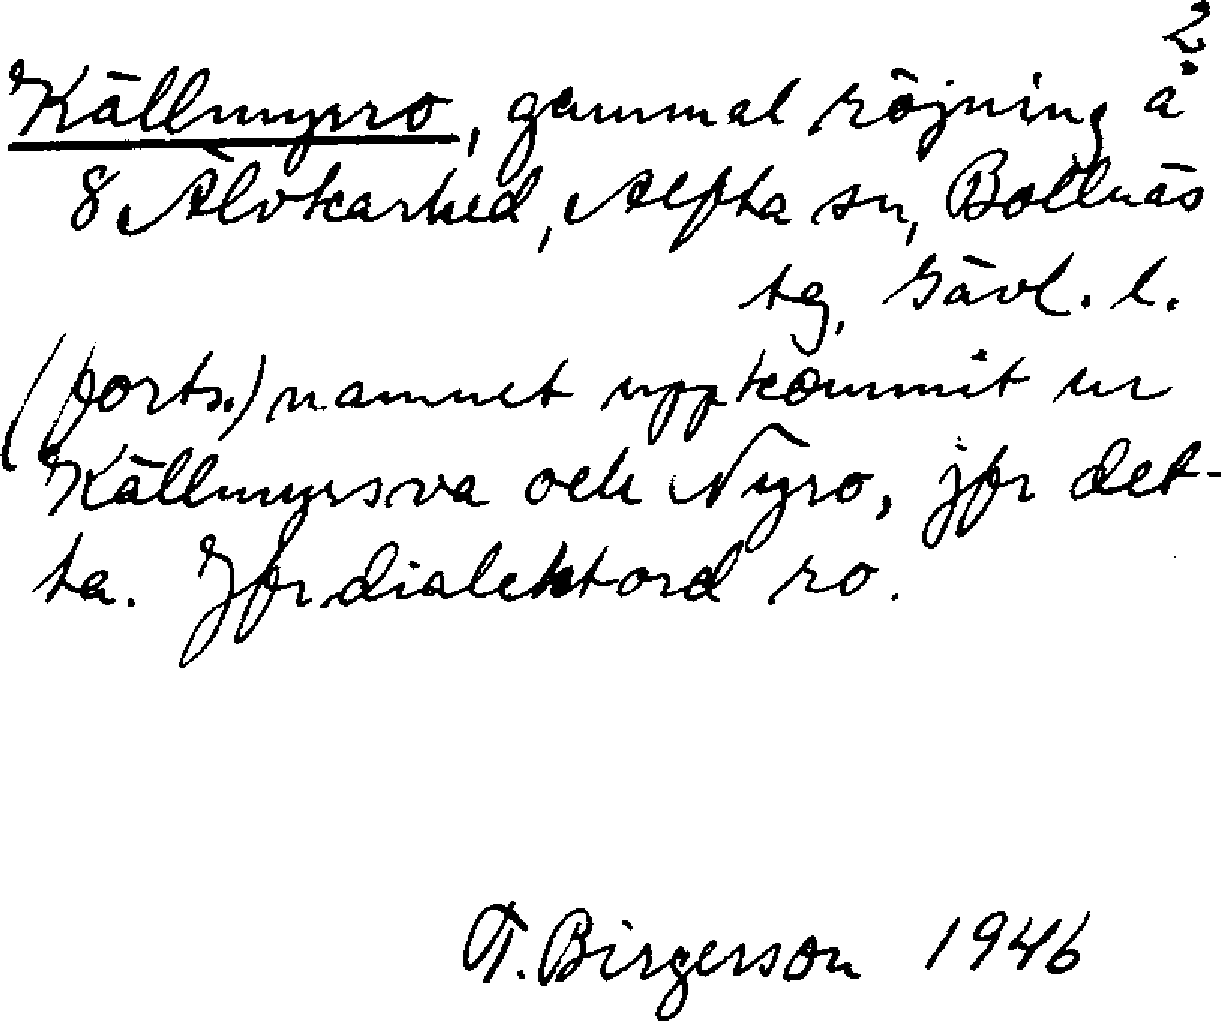 2.
Källmyrro, gammal röjning å
8 Älvkarhed, Alfta sn, Bollnäs
tg, Gävl. l.
(forts.) namnet uppkommit ur
Källmyrsva och Nyro, jfr det-
ta. Jfr dialektord ro.
T. Birgerson 1946